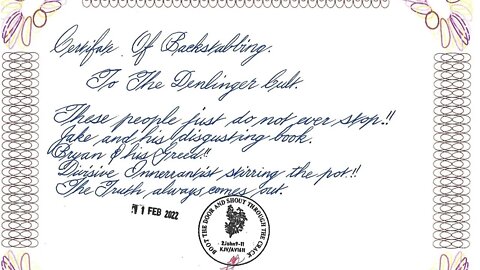 Certificate Of Backstabbing.
To The Denlinger Cult.
These people just do not ever stop!!
Jake and his disgusting book.
Bryan & his Greed!!
Divisive Onnerrantist stirring the pot!!
The Truth always comes out.
1 FEB 2022
BOOT THE DOOR AND SHOUT THROUGH THE CRACK
2John9-11
KJV/AV1611